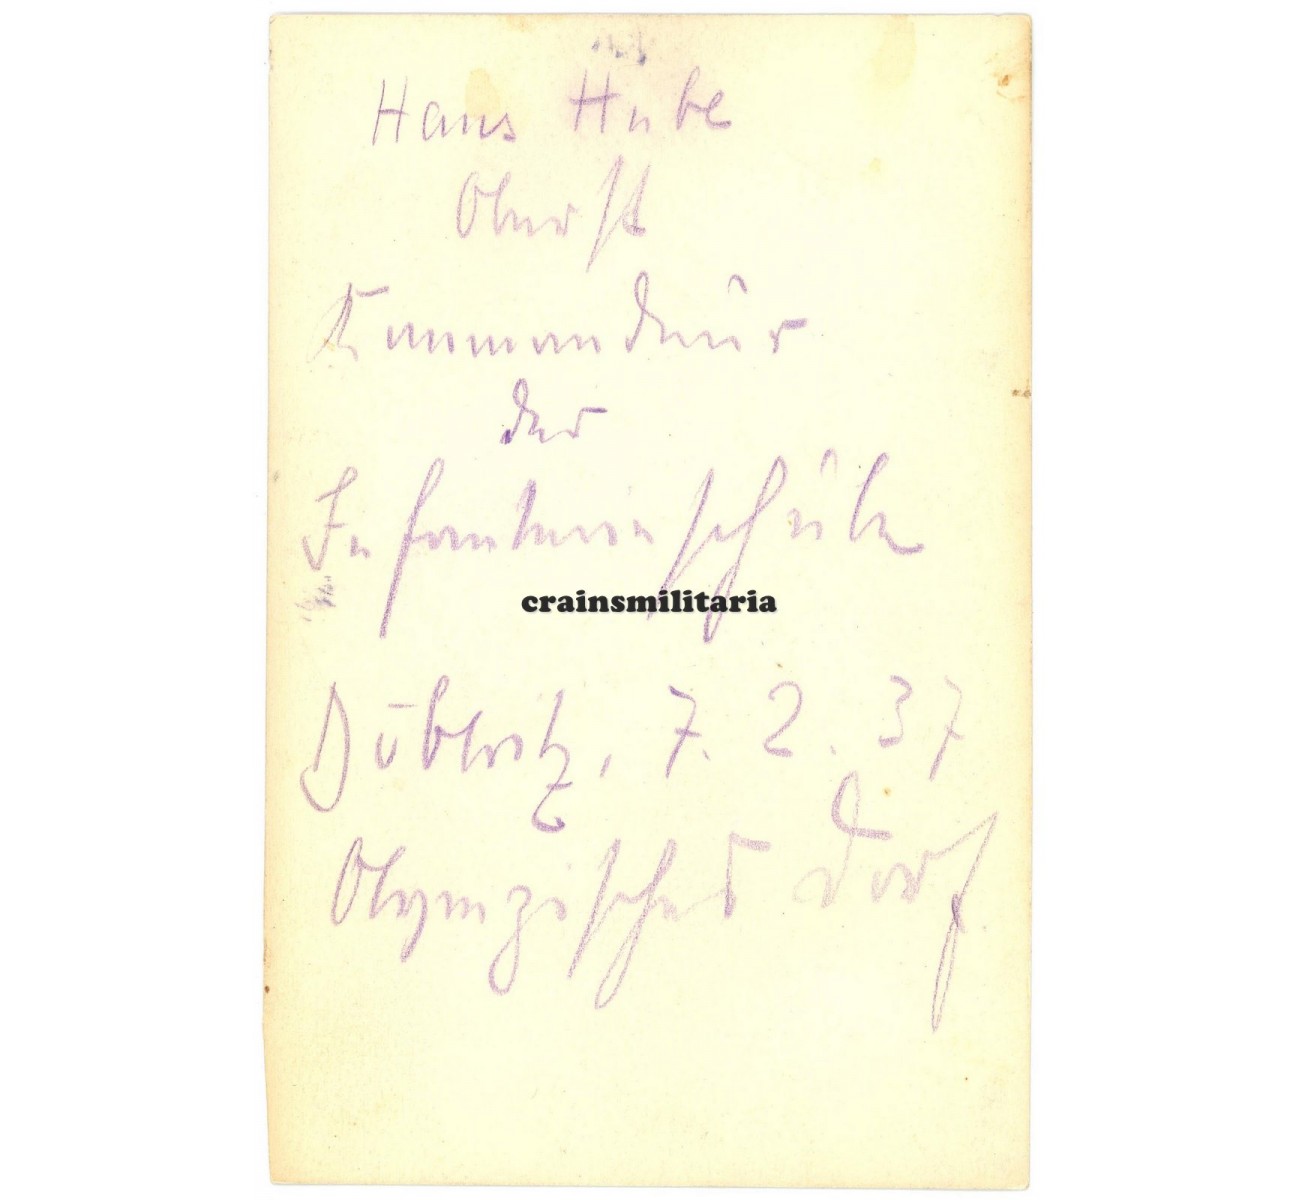 Hans Hube
Oberst
Kommandeur
der
Infanterieschule
crainsmilitaria
Döberitz, 7. 2. 37
Olympisches Dorf